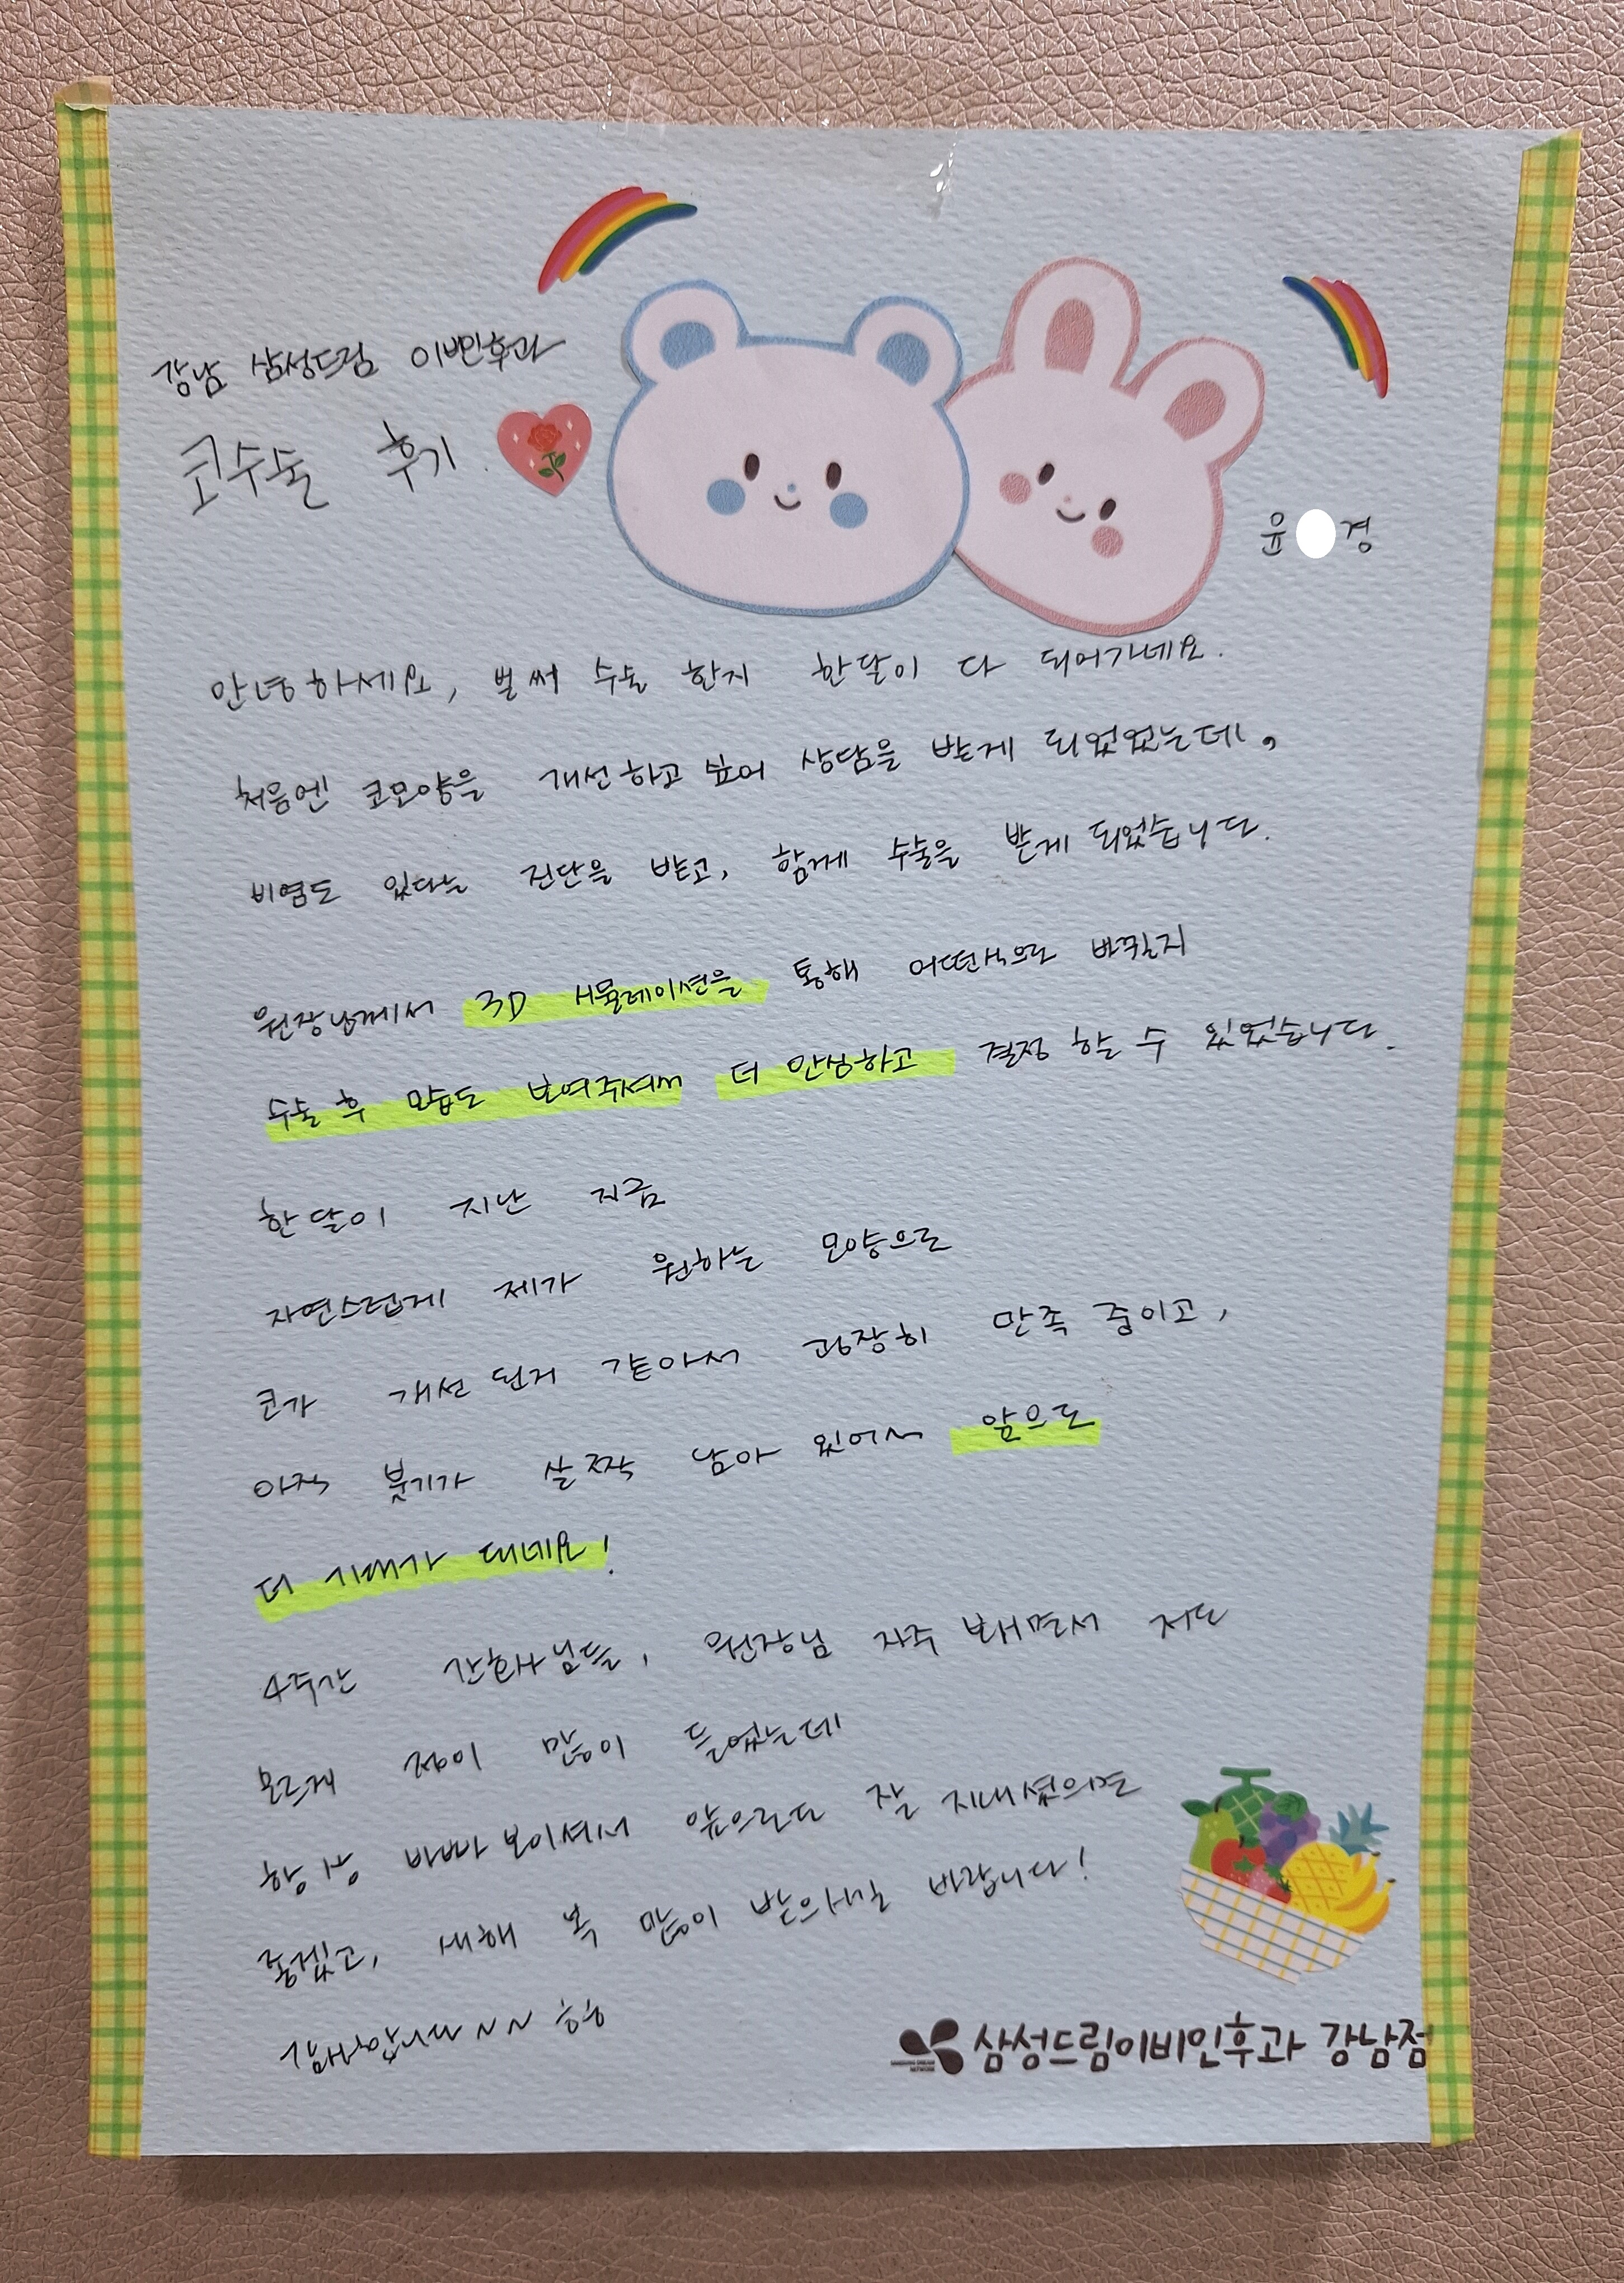 강남 삼성드림 이빈후과
코수술 후기.
윤 경
안녕하세요, 벌써 수술 한지 한달이 다 되어가네요.
처음엔 코모양을 개선하고 싶어 상담을 받게 되었었는데,
비염도 있다는 진단을 받고, 함께 수술을 받게 되었습니다.
원장님께서 3D 시뮬레이션을 통해 어떤식으로 바뀔지
수술 후 모습도 보여주셔서 더 안심하고 결정 할 수 있었습니다.
한달이 지난 지금
자연스럽게 제가 원하는 모양으로
코가 개선 된거 같아서 굉장히 만족 중이고,
아직 붓기가 살짝 남아 있어서 앞으로
더 기대가 돼네요!
4주간 간호사님들, 원장님 자주 봬면서 저도
모르게 정이 많이 들었는데
항상 바빠보이셔서 앞으로도 잘 지내셨으면
좋겠고, 새해 복 많이 받으시길 바랍니다!
감사합니다~~ ㅎㅎ
삼성드림이비인후과 강남점